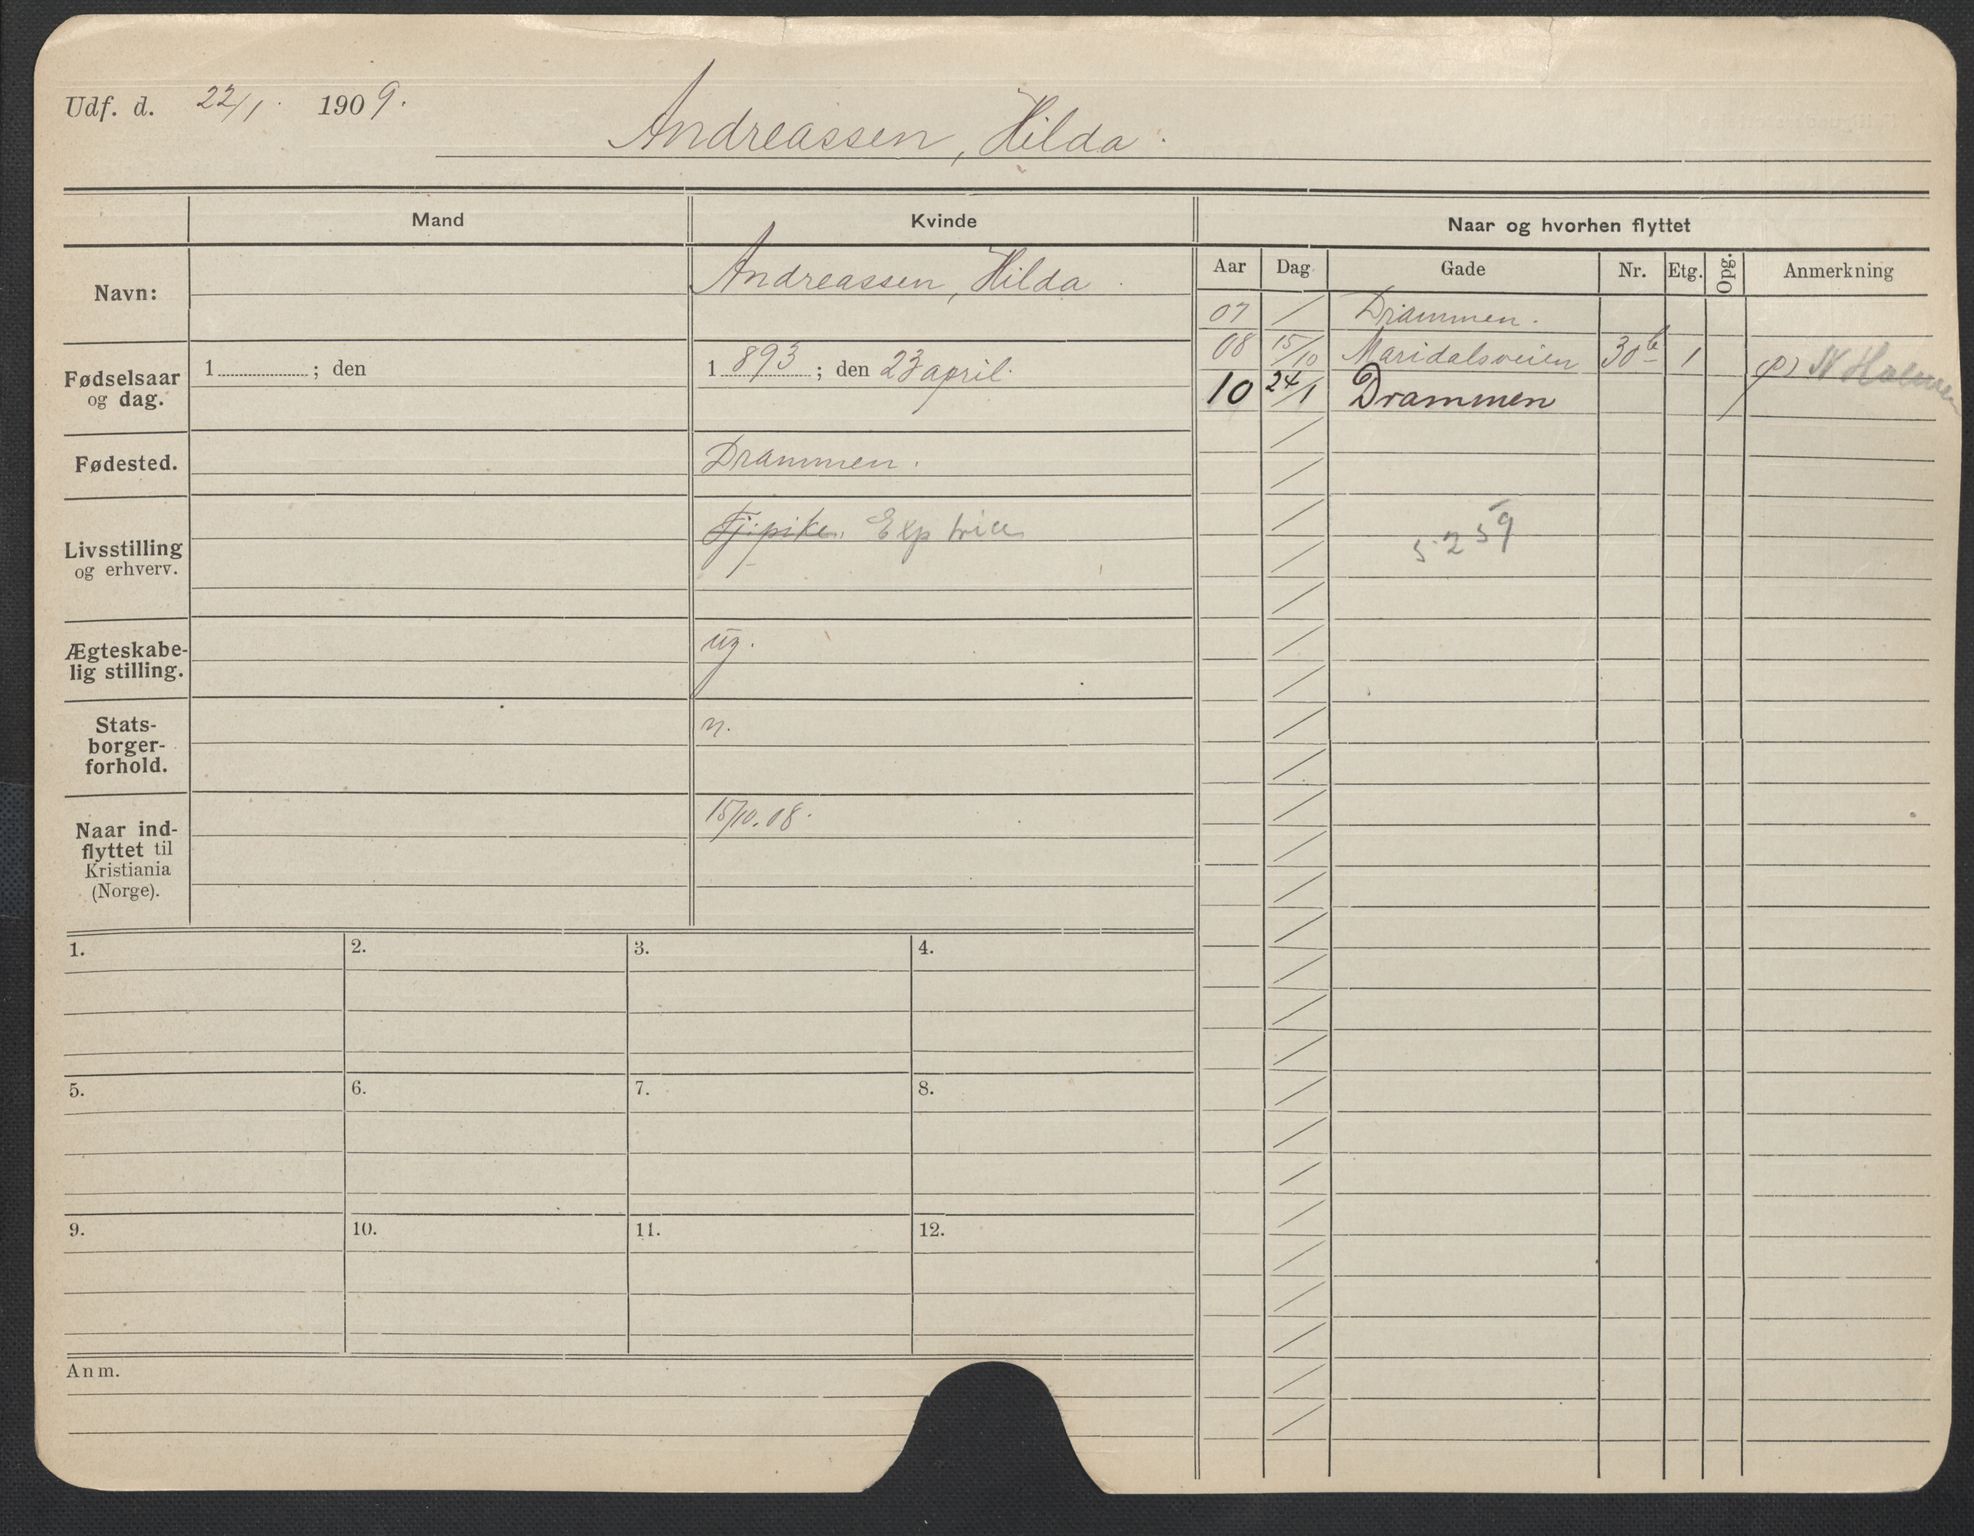 Udf. d. 22/1. 1909.
Andreassen, Hilda.
Mand
Kvinde
Naar og hvorhen flyttet
Aar Dag Gade Nr. Etg. Opg. Anmerkning
Navn:
Andreassen, Hilda.
07 / Drammen.
08 15/10 Maridalsveien 30b 1
10 24/1 Drammen
Fødselsaar
og dag.
1 ; den
1893 ; den 23 april.
Fødested.
Drammen.
Livsstilling
og erhverv.
Tj.pike. Exp trice
5259
Ægteskabe-
lig stilling.
ug.
Stats-
borger-
forhold.
n.
Naar ind-
flyttet til
Kristiania
(Norge).
15/10.08.
1. 2. 3. 4.
5. 6. 7. 8.
9. 10. 11. 12.
Anm.